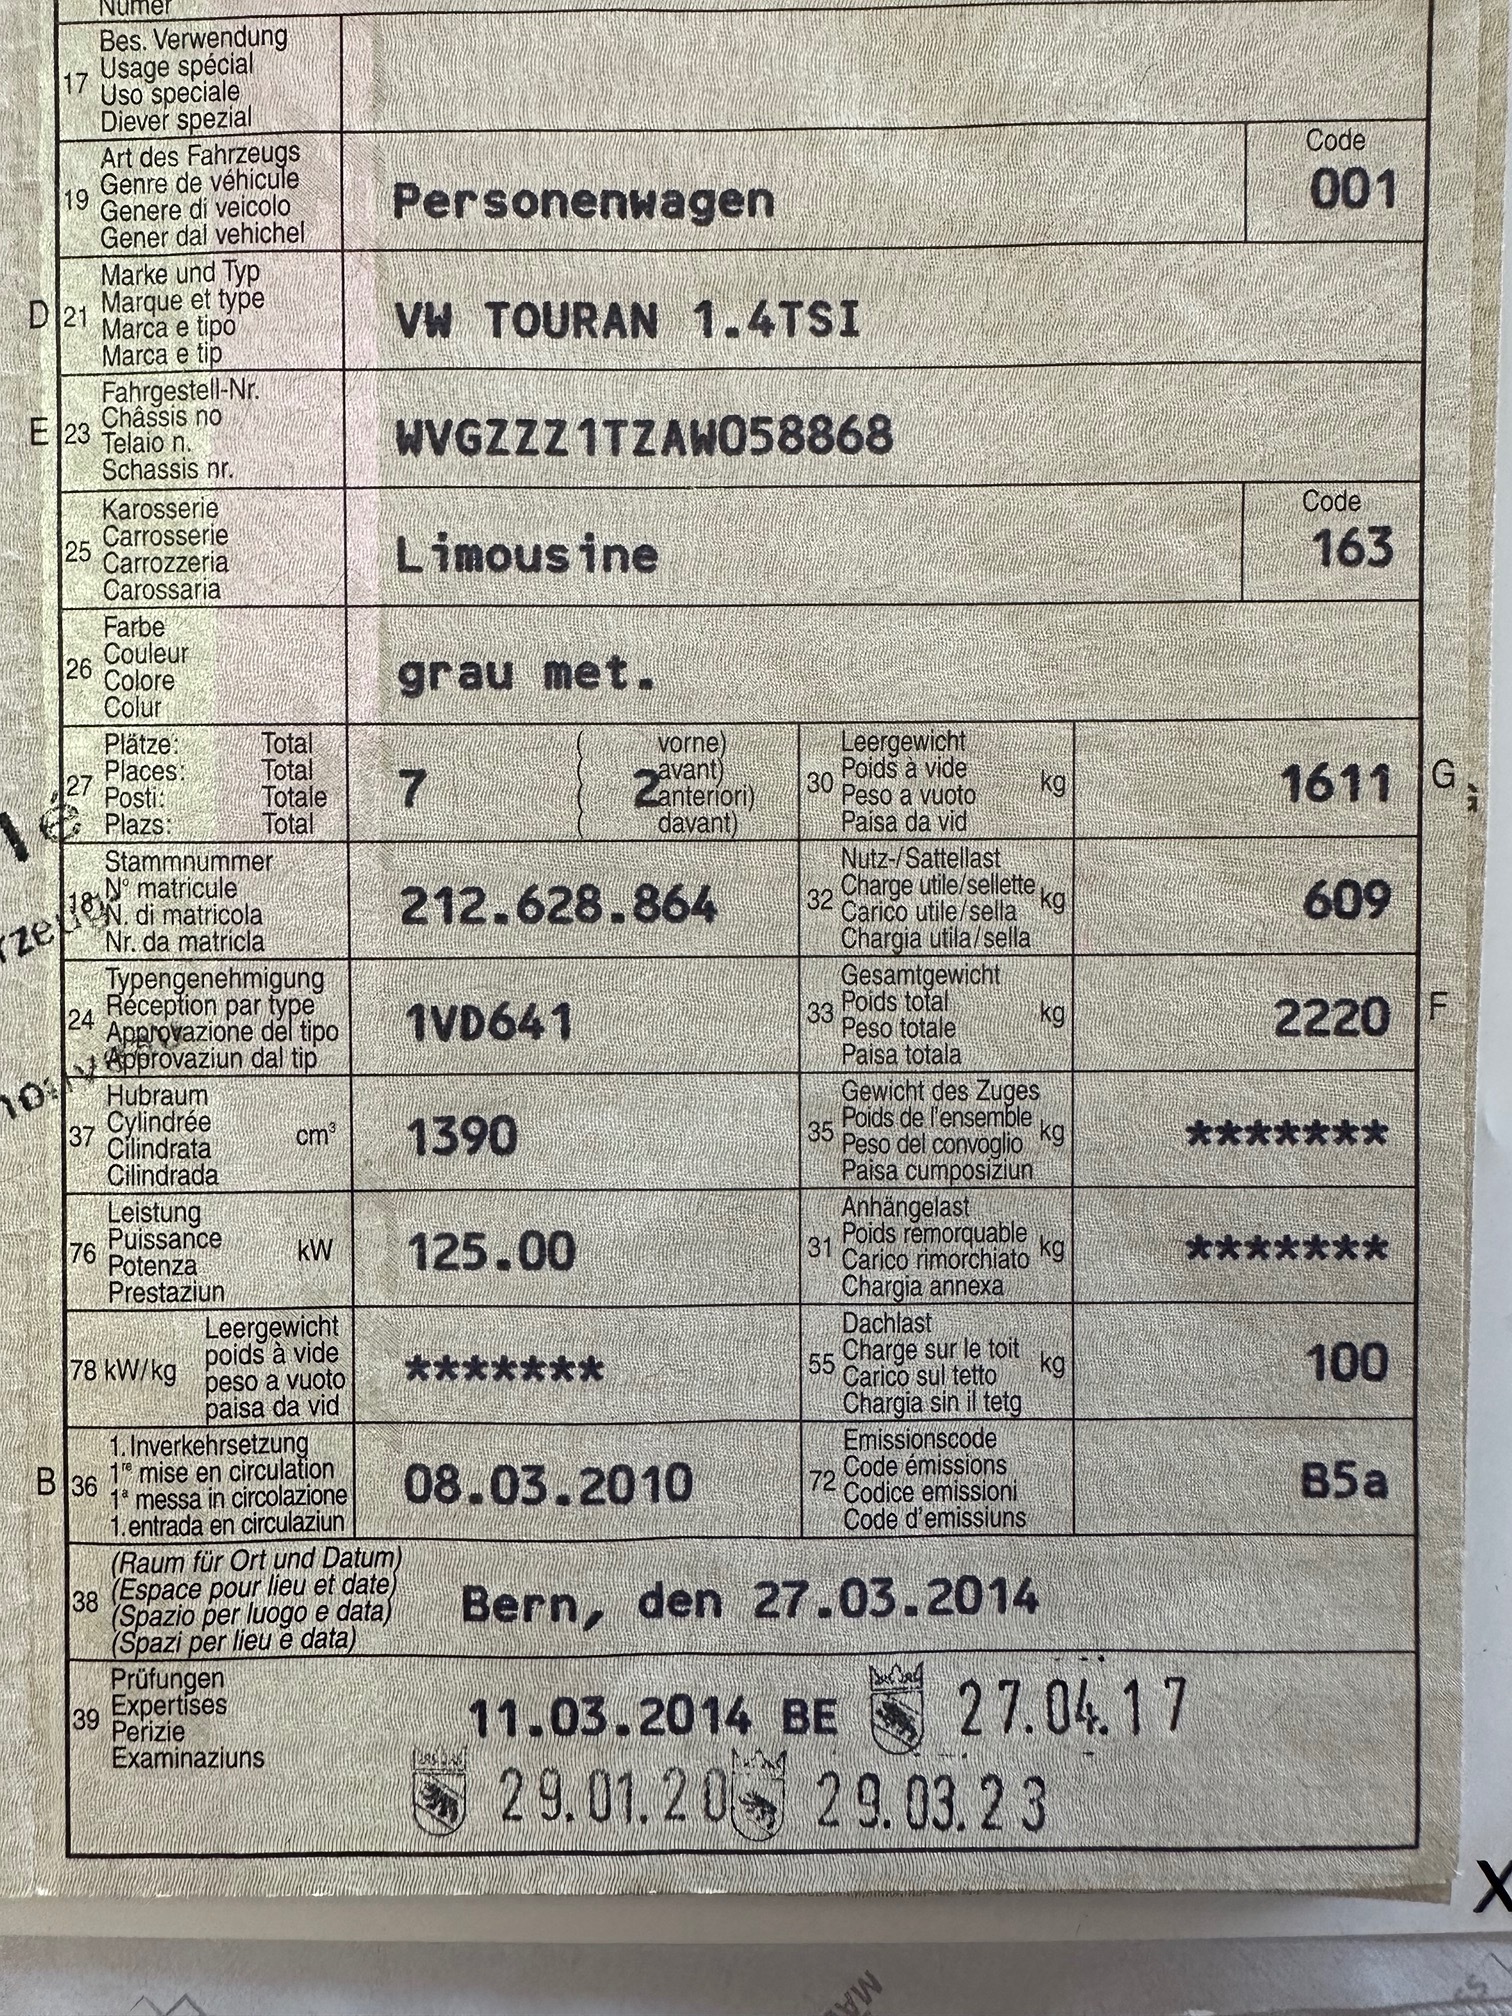 Numer
17 Bes. Verwendung
Usage spécial
Uso speciale
Diever spezial
19 Art des Fahrzeugs
Genre de véhicule
Genere di veicolo
Gener dal vehichel
Personenwagen
Code
001
D 21 Marke und Typ
Marque et type
Marca e tipo
Marca e tip
VW TOURAN 1.4TSI
E 23 Fahrgestell-Nr.
Châssis no
Telaio n.
Schassis nr.
WVGZZZ1TZAW058868
25 Karosserie
Carrosserie
Carrozzeria
Carossaria
Limousine
Code
163
26 Farbe
Couleur
Colore
Colur
grau met.
27 Plätze: Total
Places: Total
Posti: Totale
Plazs: Total
7
( vorne)
( avant)
( anteriori)
( davant)
2
30 Leergewicht
Poids à vide
Peso a vuoto
Paisa da vid
kg
1611
G
18 Stammnummer
N° matricule
N. di matricola
Nr. da matricla
212.628.864
32 Nutz-/Sattellast
Charge utile/sellette
Carico utile/sella
Chargia utila/sella
kg
609
24 Typengenehmigung
Réception par type
Approvazione del tipo
Approvaziun dal tip
1VD641
33 Gesamtgewicht
Poids total
Peso totale
Paisa totala
kg
2220
F
37 Hubraum
Cylindrée
Cilindrata
Cilindrada
cm³
1390
35 Gewicht des Zuges
Poids de l'ensemble
Peso del convoglio
Paisa cumposiziun
kg
*******
76 Leistung
Puissance
Potenza
Prestaziun
kW
125.00
31 Anhängelast
Poids remorquable
Carico rimorchiato
Chargia annexa
kg
*******
78 kW/kg Leergewicht
poids à vide
peso a vuoto
paisa da vid
*******
55 Dachlast
Charge sur le toit
Carico sul tetto
Chargia sin il tetg
kg
100
B 36 1. Inverkehrsetzung
1re mise en circulation
1a messa in circolazione
1. entrada en circulaziun
08.03.2010
72 Emissionscode
Code émissions
Codice emissioni
Code d'emissiuns
B5a
38 (Raum für Ort und Datum)
(Espace pour lieu et date)
(Spazio per luogo e data)
(Spazi per lieu e data)
Bern, den 27.03.2014
39 Prüfungen
Expertises
Perizie
Examinaziuns
11.03.2014 BE 27.04.17
29.01.20 29.03.23
X